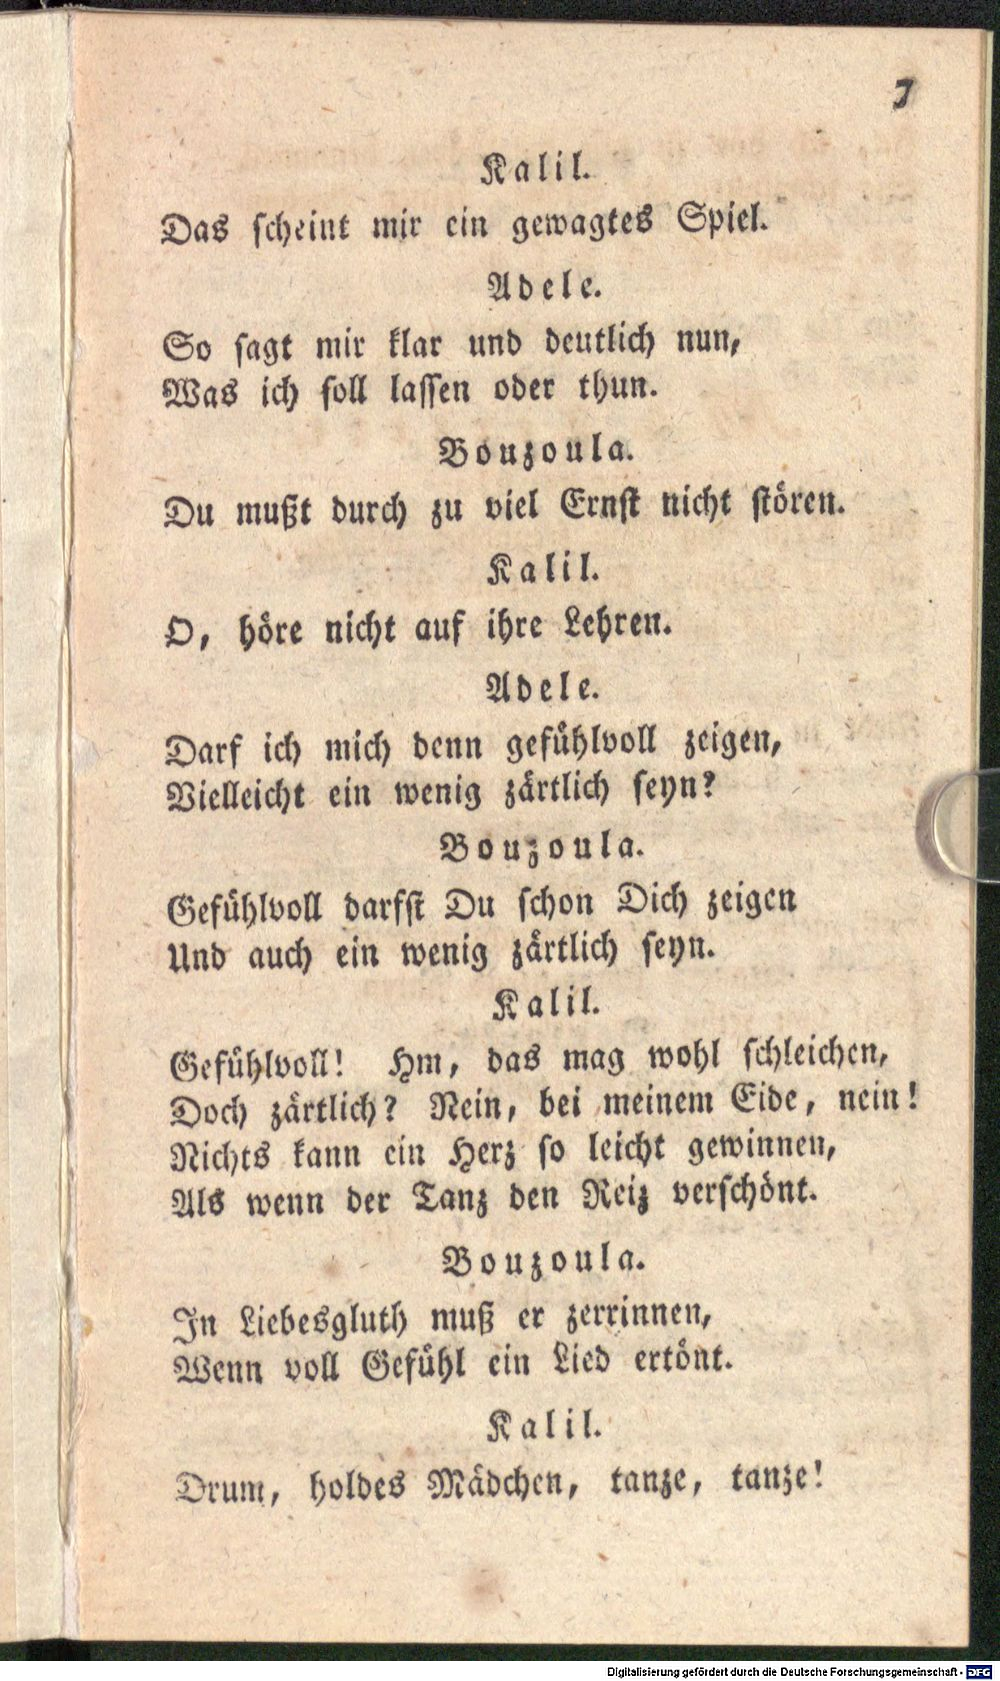 7
Kalil.
Das scheint mir ein gewagtes Spiel.
Adele.
So sagt mir klar und deutlich nun,
Was ich soll lassen oder thun.
Bouzoula.
Du mußt durch zu viel Ernst nicht stören.
Kalil.
O, höre nicht auf ihre Lehren.
Adele.
Darf ich mich denn gefühlvoll zeigen,
Vielleicht ein wenig zärtlich seyn?
Bouzoula.
Gefühlvoll darfst Du schon Dich zeigen
Und auch ein wenig zärtlich seyn.
Kalil.
Gefühlvoll! Hm, das mag wohl schleichen,
Doch zärtlich? Nein, bei meinem Eide, nein!
Nichts kann ein Herz so leicht gewinnen,
Als wenn der Tanz den Reiz verschönt.
Bouzoula.
In Liebesgluth muß er zerrinnen,
Wenn voll Gefühl ein Lied ertönt.
Kalil.
Drum, holdes Mädchen, tanze, tanze!
Digitalisierung gefördert durch die Deutsche Forschungsgemeinschaft - DFG